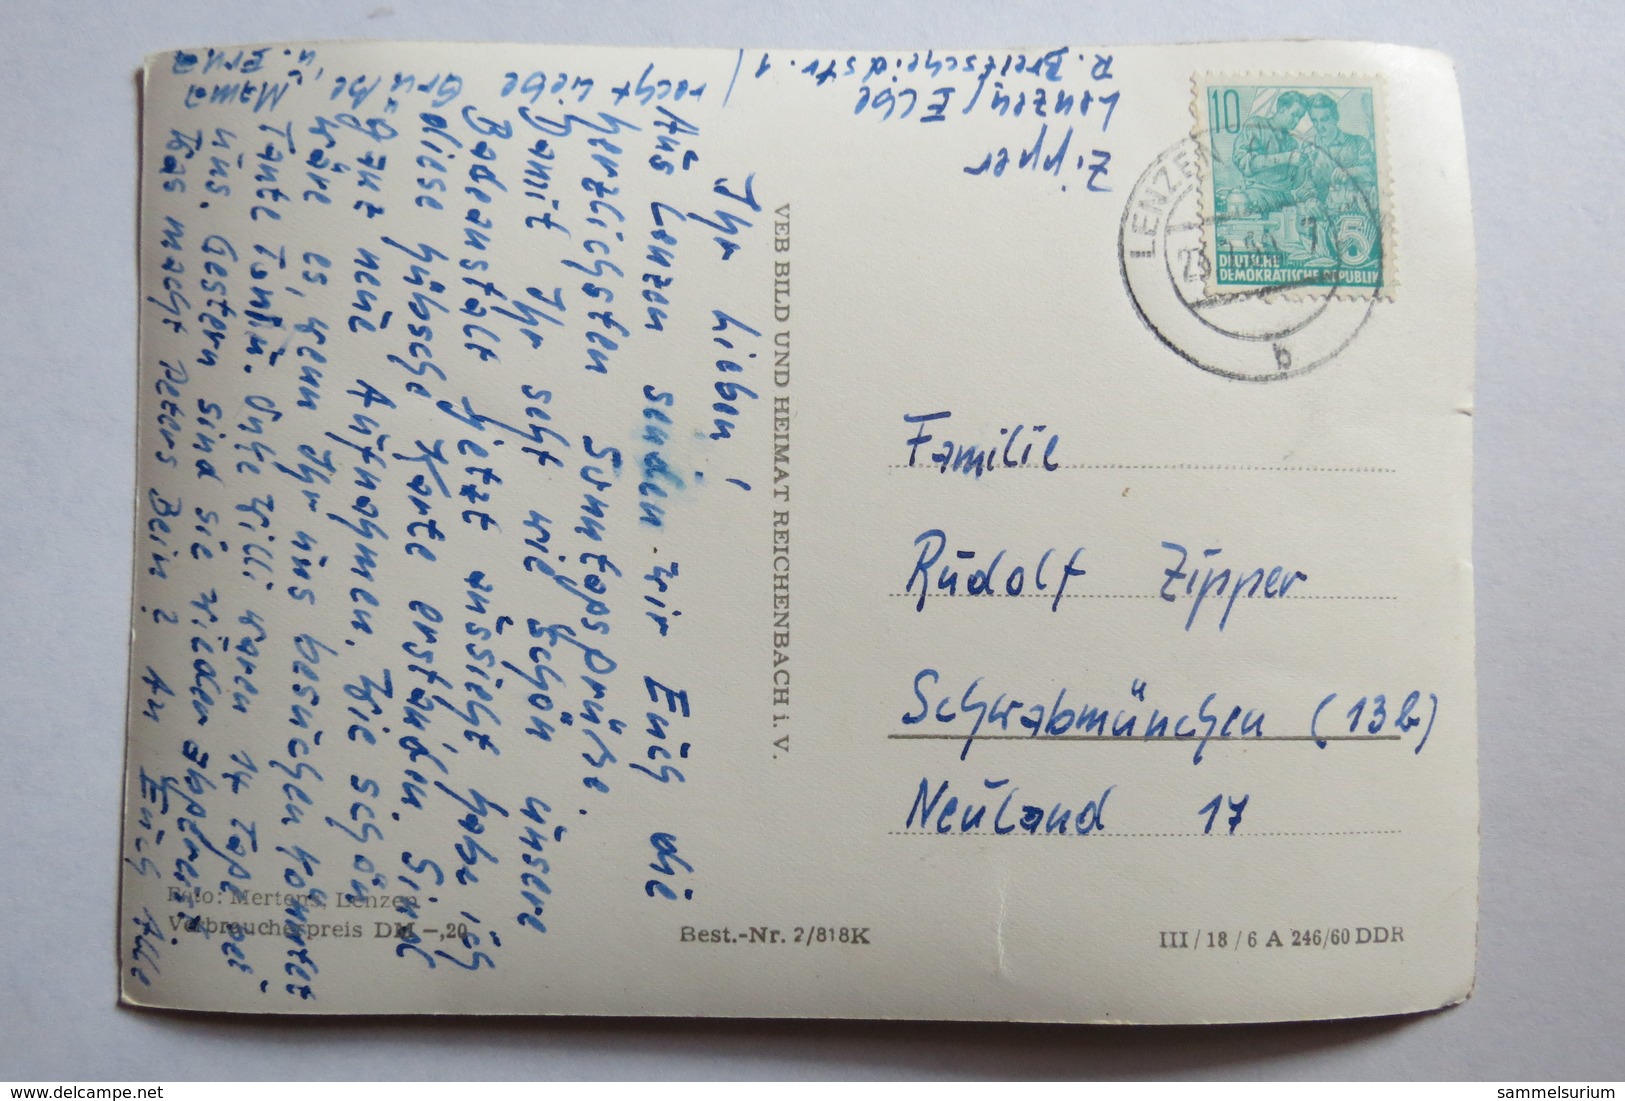 Ihr Lieben!
Aus Lenzen senden wir Euch die
herzlichsten Sonntagsgrüße.
Damit Ihr seht wie schön unsere
Badeanstalt jetzt aussieht, habe ich
diese hübsche Karte erstanden. Sind
ganz neue Aufnahmen. Wie schön
wäre es, wenn Ihr uns besuchen könntet
Tante Willi waren 14 Tage bei
uns. Gestern sind sie wieder
Was macht Peters Bein? An Euch Alle
recht liebe
Grüße,
Mama
u. Erna
VEB BILD UND HEIMAT REICHENBACH i. V.
Zipper
Lenzen / Elbe
R. Breitscheidstr. 1
10
5
DEUTSCHE
DEMOKRATISCHE REPUBLIK
LENZEN
b
Familie
Rudolf Zipper
Schwabmünchen (13b)
Neuland 17
Foto: Mertens, Lenzen
Verbraucherpreis DM —,20
Best.-Nr. 2/818K
III / 18 / 6 A 246/60 DDR
sammelsurium
delcampe.net